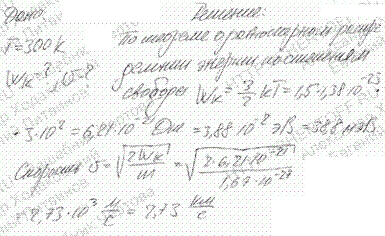 Дано: Решение:
T=300 K По теореме о равномерном распре-
Wк-? υ-? делении энергии по степеням
свободы Wк = 3/2 kT = 1,5·1,38·10⁻²³
·3·10² = 6,21·10⁻²¹ Дж = 3,88·10⁻² эВ = 38,8 мэВ
Скорость υ = √(2Wк/m) = √(2·6,21·10⁻²¹/1,67·10⁻²⁷)
= 2,73·10³ м/с = 2,73 км/с